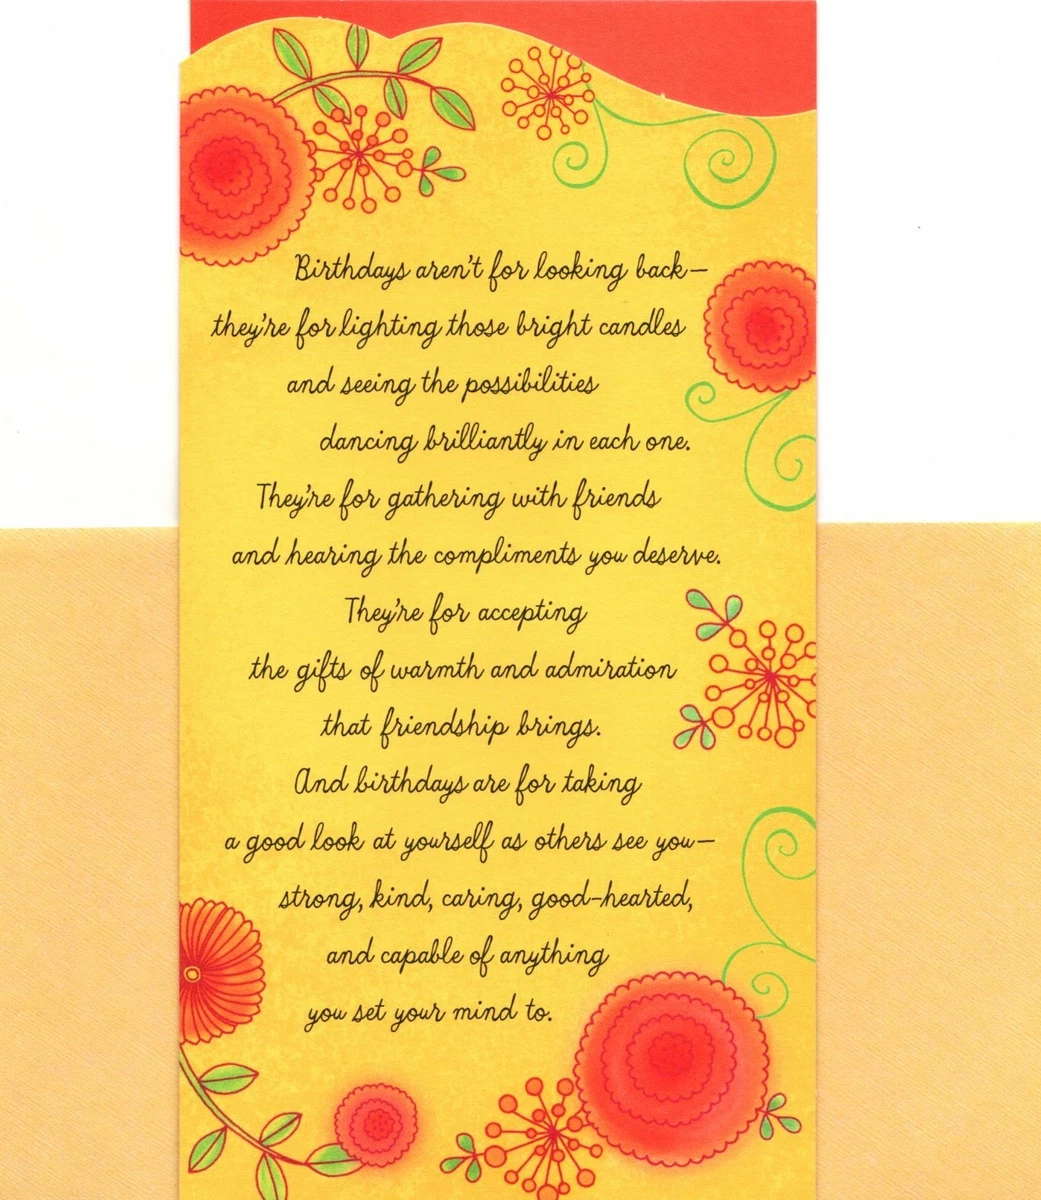 Birthdays aren't for looking back—
they're for lighting those bright candles
and seeing the possibilities
dancing brilliantly in each one.
They're for gathering with friends
and hearing the compliments you deserve.
They're for accepting
the gifts of warmth and admiration
that friendship brings.
And birthdays are for taking
a good look at yourself as others see you—
strong, kind, caring, good-hearted,
and capable of anything
you set your mind to.